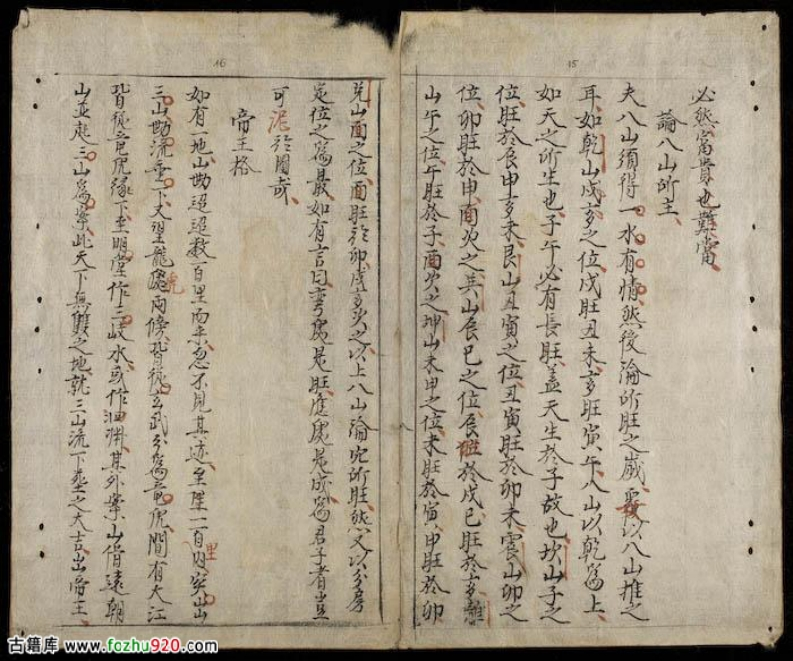 15
必然富貴也難當
論八山所主
夫八山須得一水有情然後論所旺之歲要以八山推之
耳如乾山戌亥之位戌旺丑未亥旺寅午八山以乾為上
如天之所生也子午必有長旺蓋天生於子故也坎山子之
位旺於辰申亥未艮山丑寅之位丑寅旺於卯未震山卯之
位卯旺於申酉次之巽山辰巳之位辰旺於戌巳旺於亥離
山午之位午旺於子酉次之坤山未申之位未旺於寅申旺於卯
16
兌山酉之位酉旺於卯虛亥次之以上八山論究所旺然又以分房
定位之為最如有言曰弯處是旺處是成為君子者豈
可泥於圖哉
帝王格
如有一地山勘迢迢数百里而來忽不見其迹至星一百里內突出
三山勘流垂下又望龍虎兩傍皆從玄武分為竜虎間有大江
皆從竜虎缘下至明堂作三岐水或作洄渊其外案山俻遠朝
山並走三山為案此天下無雙之地就三山流下葬之大吉出帝王
古籍库 www.fozhu920.com